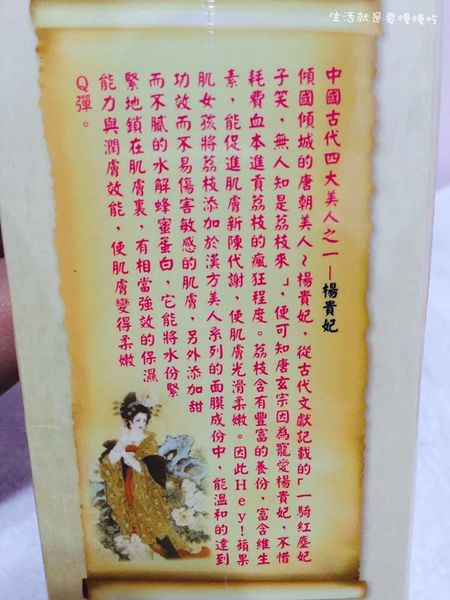 生活就是要慢慢吃
中國古代四大美人之一—楊貴妃
傾國傾城的唐朝美人~楊貴妃，從古代文獻記載的「一騎紅塵妃
子笑，無人知是荔枝來」，便可知唐玄宗因為寵愛楊貴妃，不惜
耗費血本進貢荔枝的瘋狂程度。荔枝含有豐富的養份，富含維生
素，能促進肌膚新陳代謝，使肌膚光滑柔嫩。因此Hey!蘋果
肌女孩將荔枝添加於漢方美人系列的面膜成份中，能溫和的達到
功效而不易傷害敏感的肌膚，另外添加甜
而不膩的水解蜂蜜蛋白，它能將水份緊
緊地鎖在肌膚裏，有相當強效的保濕
能力與潤膚效能，使肌膚變得柔嫩
Q彈。